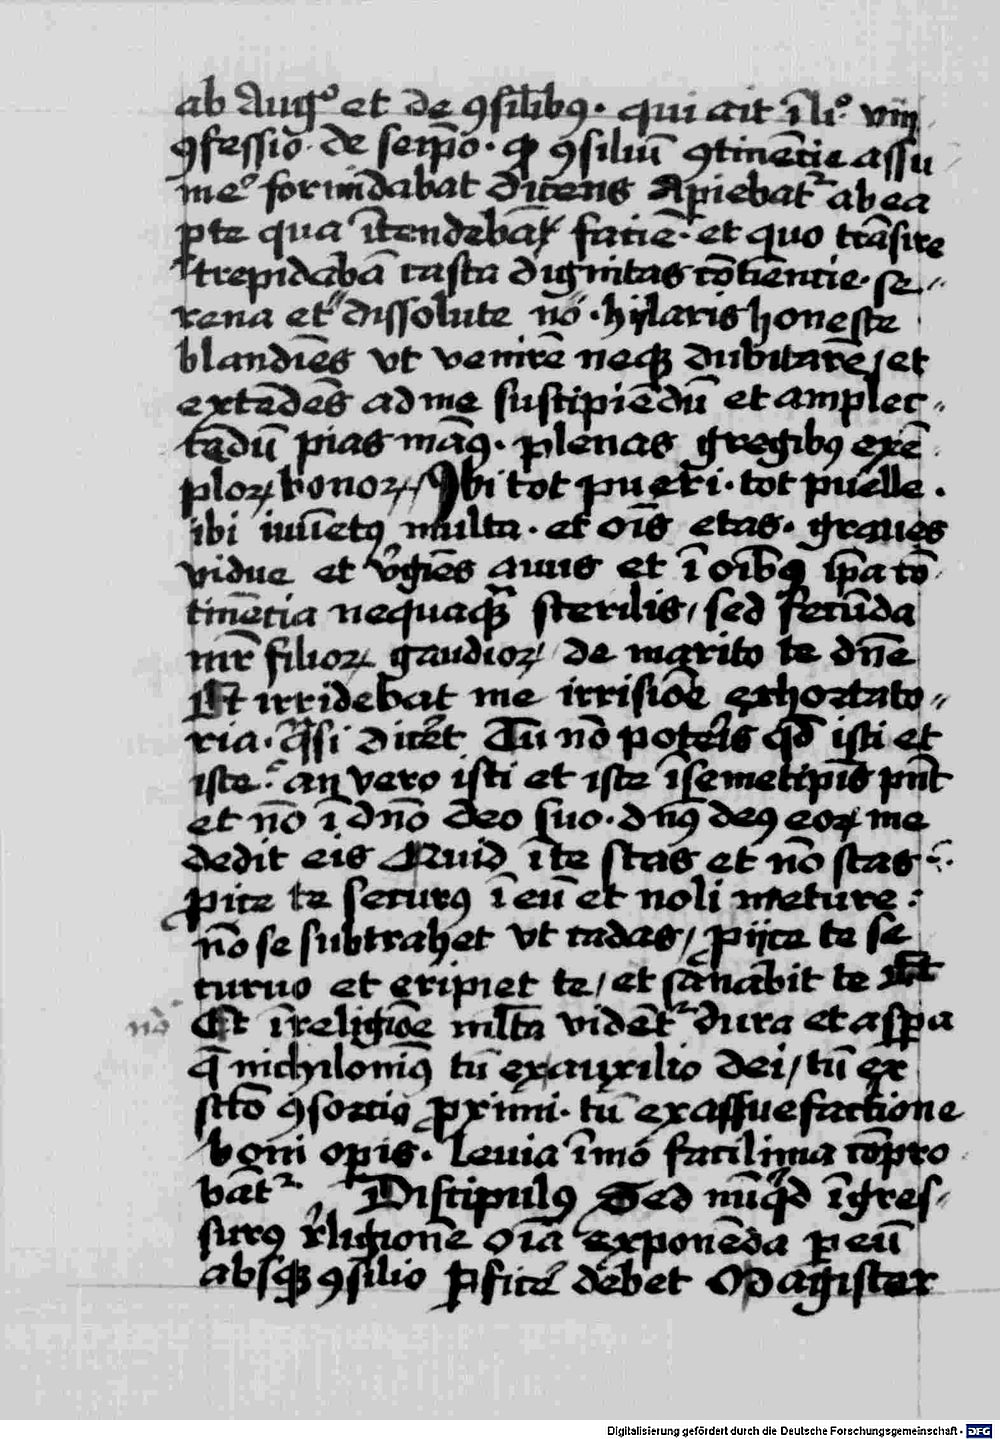 ab Augº et de ꝯsilibꝰ · qui ait ī liº viii
ꝯfessiō · de seip̄o · ꝙ ꝯsiliū ꝯtinētie assu
meº formidabat dicens Apiebatᷣ ab ea
ꝑte qua ītendebā faciē · et quo trāsire
trepidabā casta dignitas cōtinencie · se⸗
rena et dissolute nō · hylaris honeste
blandiēs vt venirē neqꝫ dubitarē / et
extēdēs ad me suscipiēdū et amplec⸗
tēdū pias manꝰ · plenas gregibꝰ exē
ploꝝ bonoꝝ // Ibi tot pueri · tot puelle ·
ibi iuuētꝰ multa · et oīs etas · graues
vidue et v̓gīes anus et ī oībꝰ ip̄a cō
tinētia nequaqꝫ sterilis / sed fecūda
mr̄ filioꝝ gaudioꝝ / de marito te dn̄e
Et irridebat me irrisiōe exhortato⸗
ria · q̄si dicēt Tu nō poteris qd̄ isti et
iste · an vero isti et iste ī semetip̄is pn̄t
et nō ī dn̄o deo suo · dn̄s deꝰ eoꝝ me
dedit eis Quid ī te stas et nō stas ·
ꝓice te securꝰ ī eū et noli metuere :
nō se subtrahet vt cadas / ꝓijce te se
curuo et eripiet te / et sanabit te
nō Et ī religiōe ml̄ta vidētᷣ dura et asꝑa
q̄ nichilominꝰ tū ex auxilio dei / tū ex
sc̄tō ꝯsorcio ꝓximi · tū ex assuefactione
boni opis · leuia īmo facilima cōpro
bātᷣ Discipulꝰ Sed nūqd̄ īgres⸗
surꝰ r̓ligionē oīa exponēda ꝑ eū
absqꝫ ꝯsilio ꝑficē debet Magister
Digitalisierung gefördert durch die Deutsche Forschungsgemeinschaft - DFG